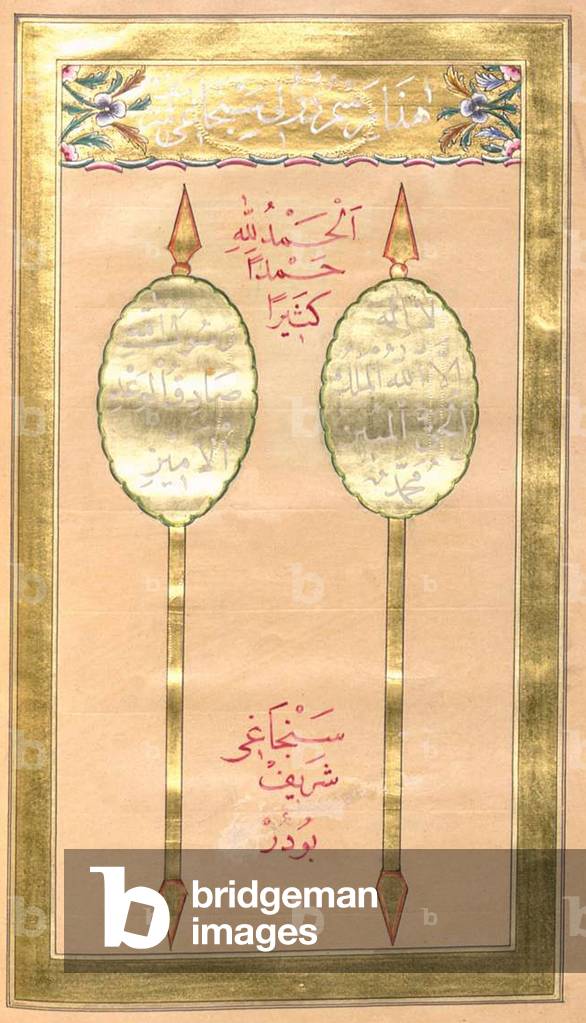 هَذَا رَسْمُ
اَلْحَمْدُ لِلّٰهِ
حَمْدًا
كَثِيرًا
لَا اِلٰهَ
اِلَّا اللّٰه الْمَلِكُ
الْحَقُّ الْمُبِينُ
مُحَمَّدٌ
رَسُولُ اللّٰهِ
صَادِقُ الْوَعْدِ
الْاَمِينِ
سَنْجَاغِى
شَرِيفْ
بُودُرْ
bridgeman
images